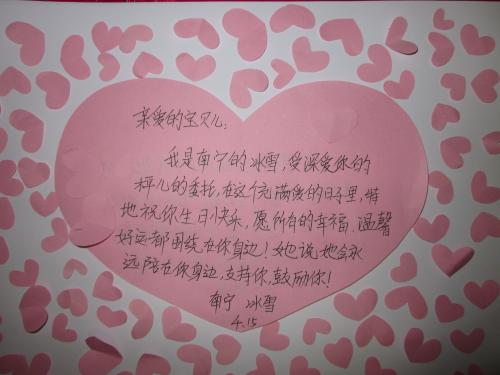 亲爱的宝贝儿:
我是南宁的冰雪,受深爱你的
秤儿的委托,在这个充满爱的日子里,特
地祝你生日快乐,愿所有的幸福.温馨
好运都围绕在你身边!她说她会永
远陪在你身边,支持你,鼓励你!
南宁 冰雪
4.15